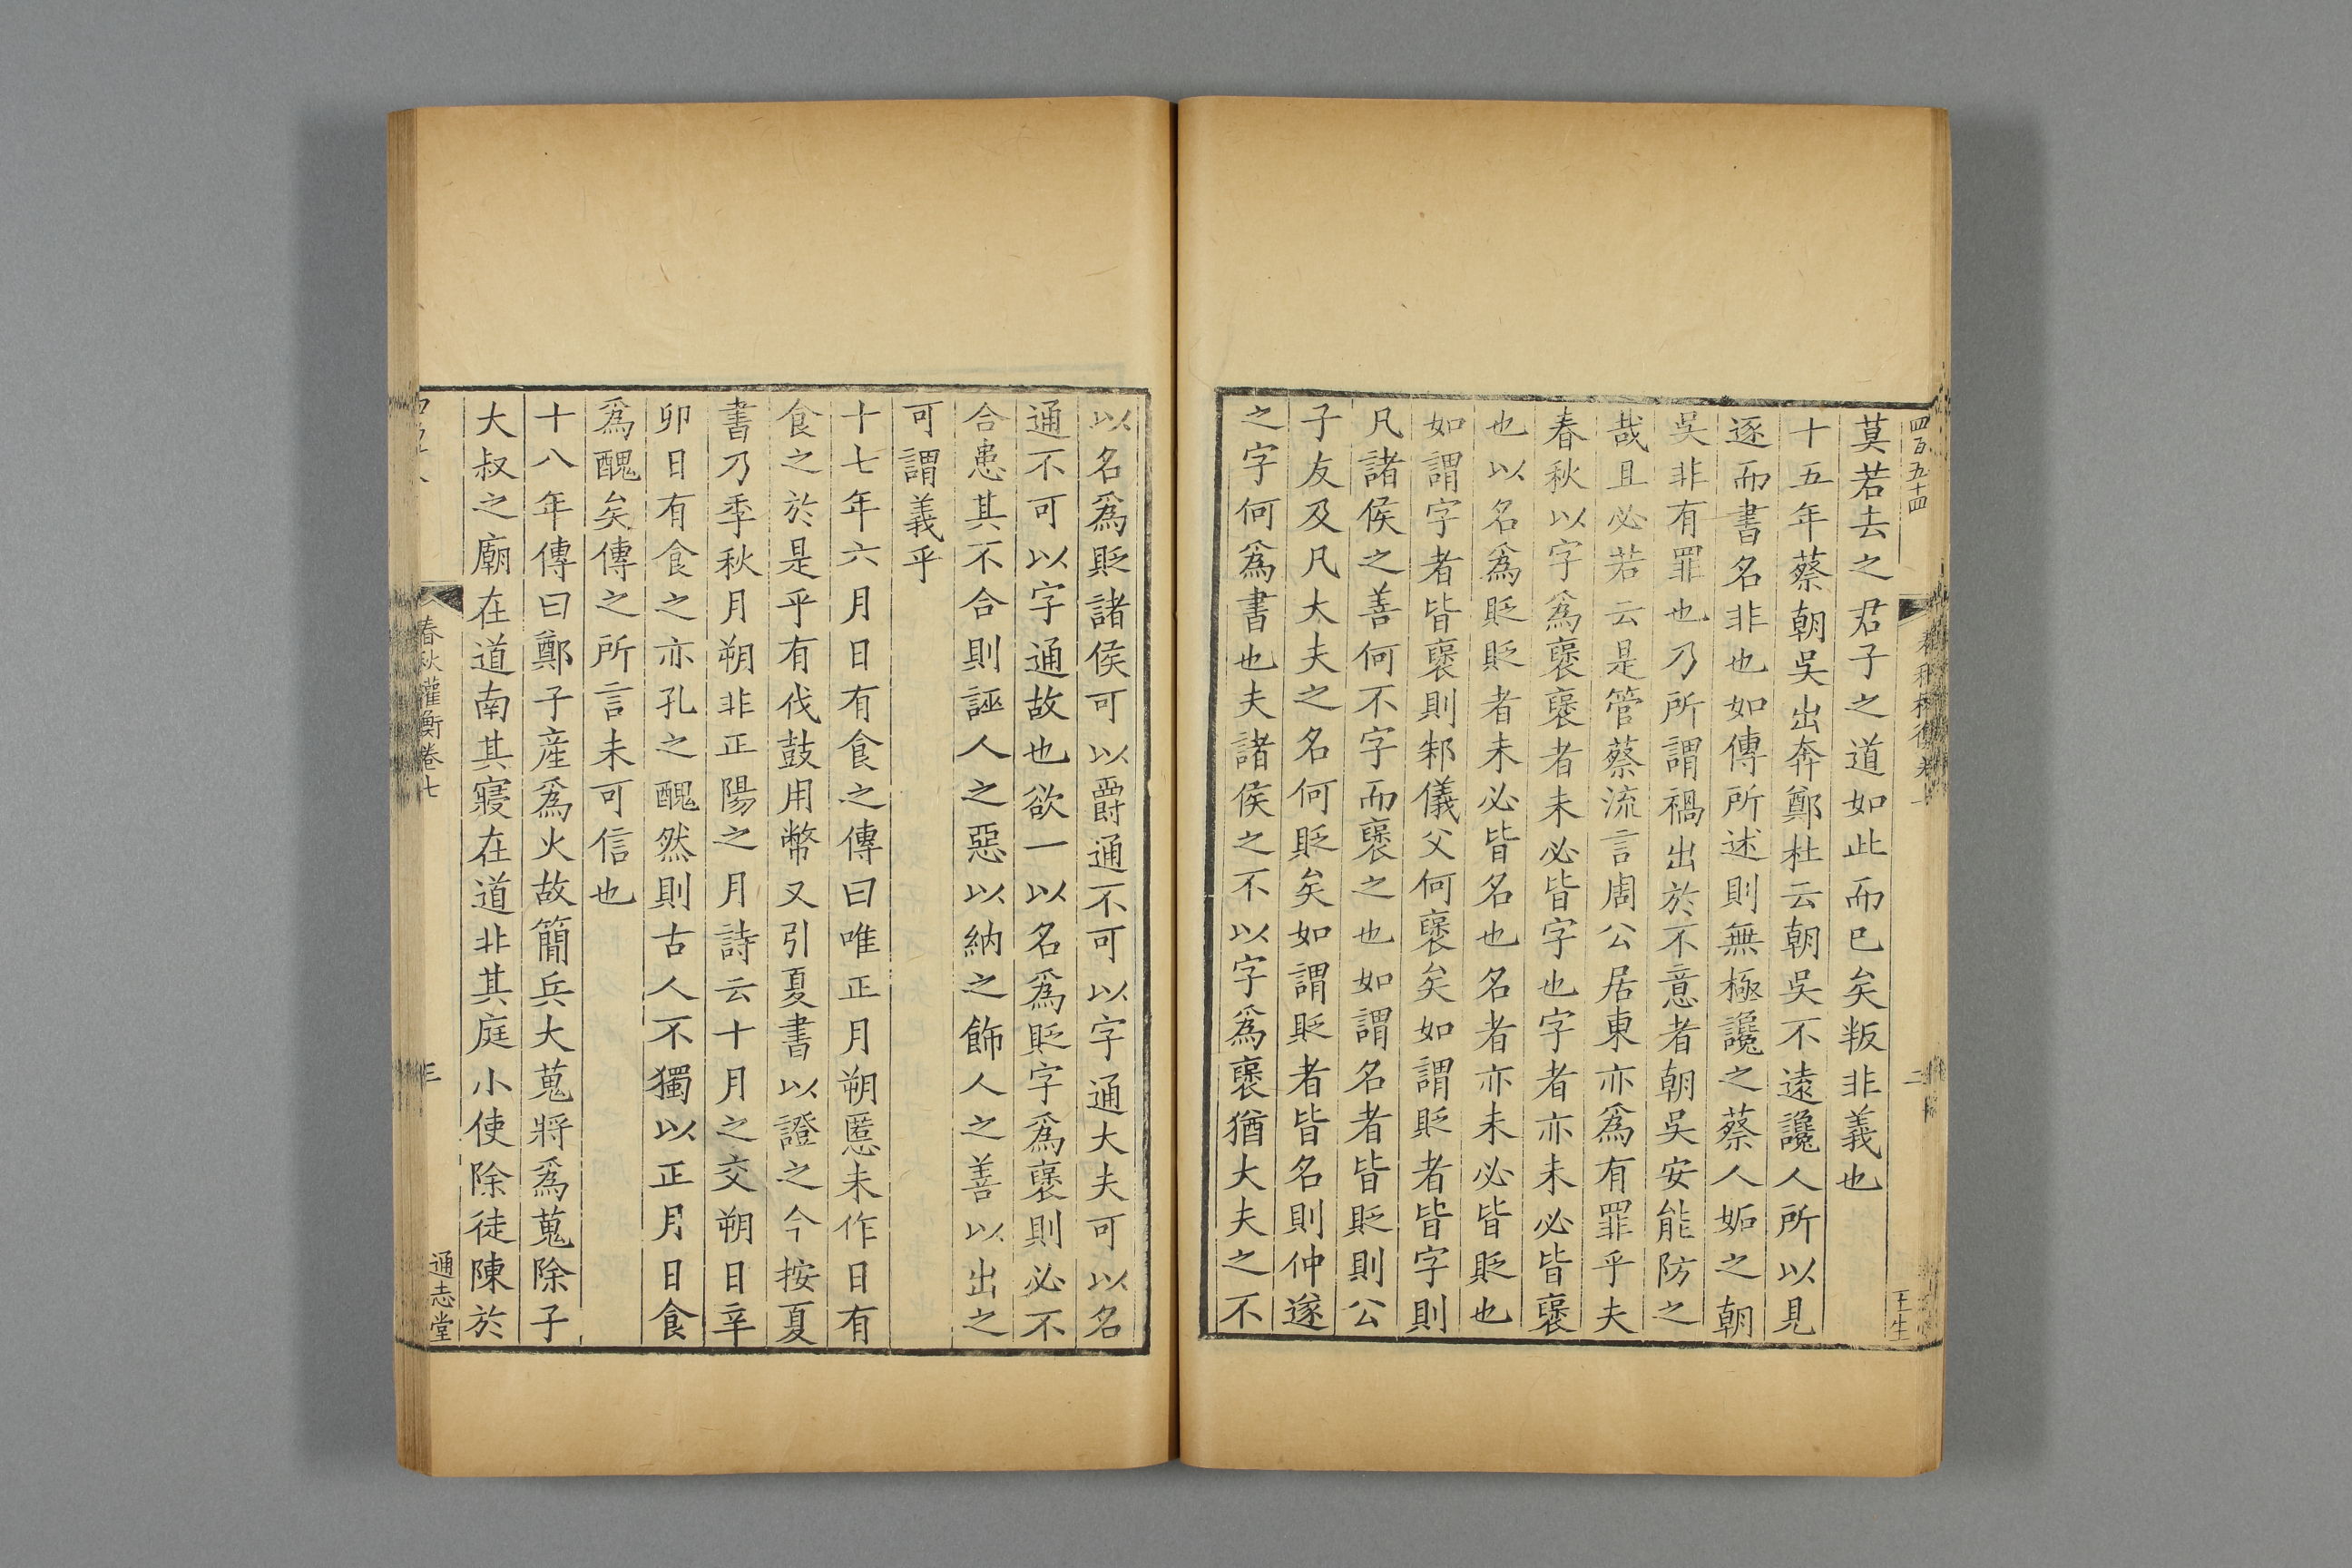 四百五十四
王生
莫若去之君子之道如此而已矣叛非義也
十五年蔡朝吳出奔鄭杜云朝吳不遠讒人所以見
逐而書名非也如傳所述則無極讒之蔡人妬之朝
吳非有罪也乃所謂禍出於不意者朝吳安能防之
哉且必若云是管蔡流言周公居東亦爲有罪乎夫
春秋以字爲襃襃者未必皆字也字者亦未必皆襃
也以名爲貶貶者未必皆名也名者亦未必皆貶也
如謂字者皆襃則邾儀父何襃矣如謂貶者皆字則
凡諸侯之善何不字而襃之也如謂名者皆貶則公
子友及凡大夫之名何貶矣如謂貶者皆名則仲遂
之字何爲書也夫諸侯之不以字爲襃猶大夫之不
以名爲貶諸侯可以爵通不可以字通大夫可以名
通不可以字通故也欲一以名爲貶字爲襃則必不
合患其不合則誣人之惡以納之飾人之善以出之
可謂義乎
十七年六月日有食之傳曰唯正月朔慝未作日有
食之於是乎有伐鼓用幣又引夏書以證之今按夏
書乃季秋月朔非正陽之月詩云十月之交朔日辛
卯日有食之亦孔之醜然則古人不獨以正月日食
爲醜矣傳之所言未可信也
十八年傳曰鄭子產爲火故簡兵大蒐將爲蒐除子
大叔之廟在道南其寢在道非其庭小使除徒陳於
春秋權衡卷七
三
通志堂